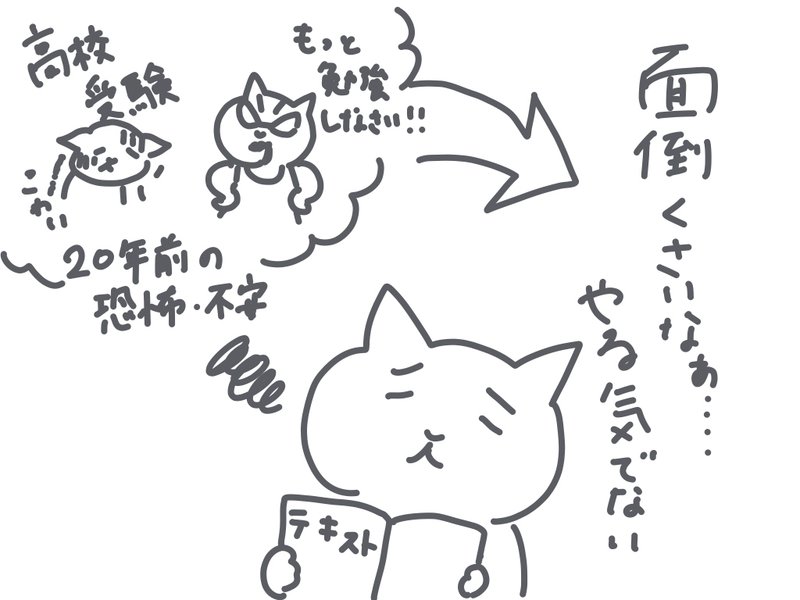 高校
受験
こわい
もっと
勉強
しなさい!!
20年前の
恐怖・不安
面倒くさいなぁ‥‥
やる気でない
テキスト